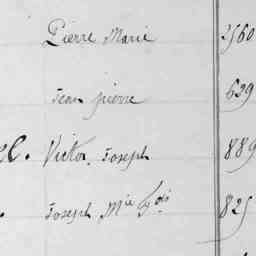 Pierre Marie 2560
Jean pierre 639
Victor Joseph 889
Joseph Mie 825